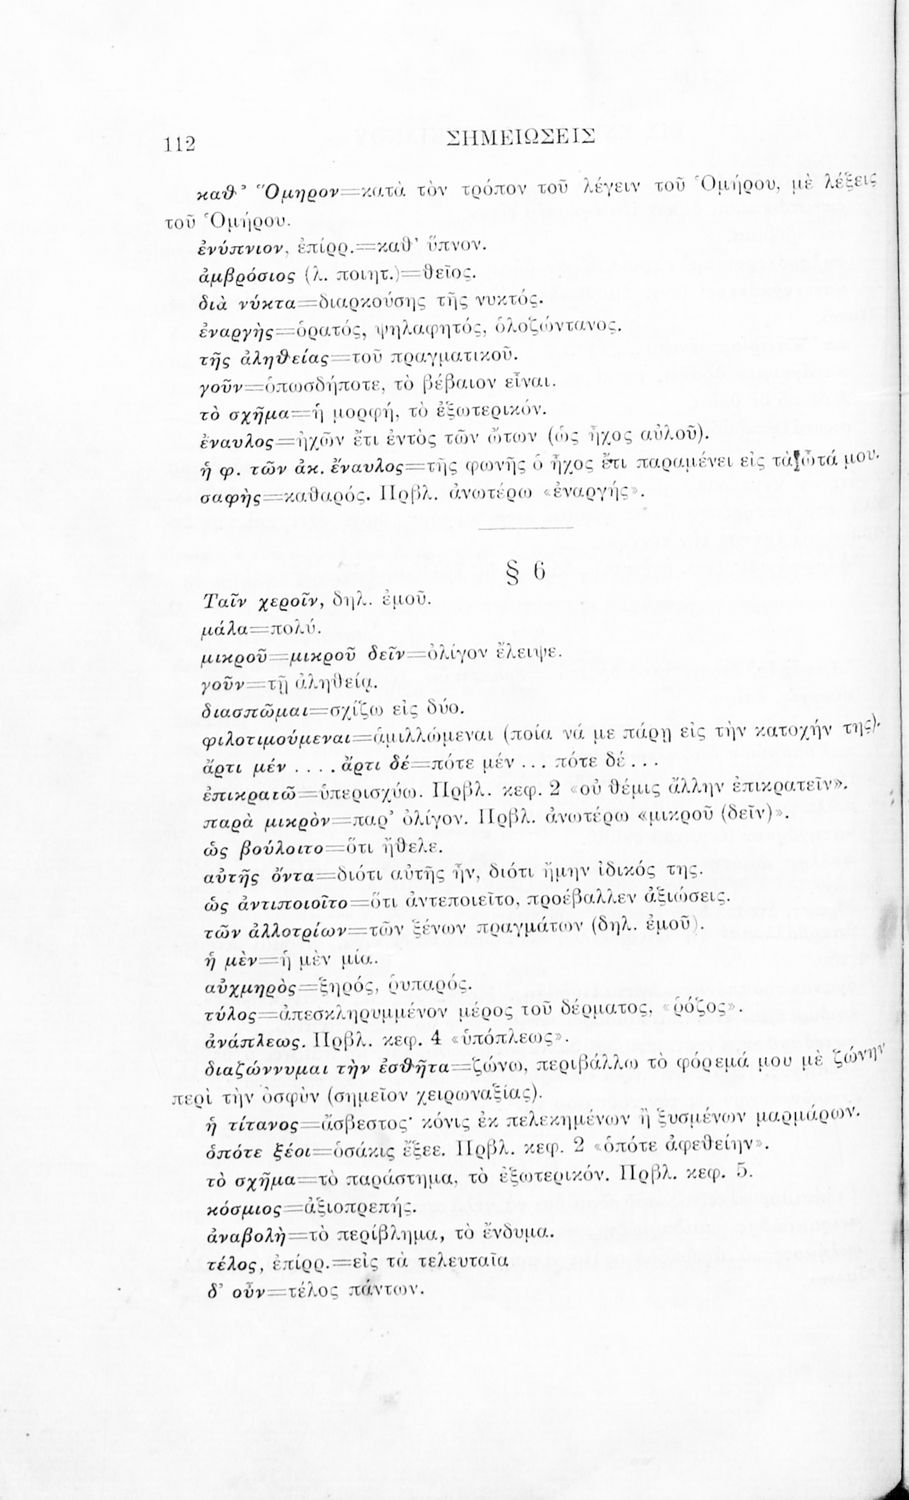 112 ΣΗΜΕΙΩΣΕΙΣ
καθ’ Ὅμηρον=κατὰ τὸν τρόπον τοῦ λέγειν τοῦ Ὁμήρου, μὲ λέξεις
τοῦ Ὁμήρου.
ἐνύπνιον, ἐπίρρ.=καθ’ ὕπνον.
ἀμβρόσιος (λ. ποιητ.)=θεῖος.
διὰ νύκτα=διαρκούσης τῆς νυκτός.
ἐναργὴς=ὁρατός, ψηλαφητός, ὁλοζώντανος.
τῆς ἀληθείας=τοῦ πραγματικοῦ.
γοῦν=ὁπωσδήποτε, τὸ βέβαιον εἶναι.
τὸ σχῆμα=ἡ μορφή, τὸ ἐξωτερικόν.
ἔναυλος=ἠχῶν ἔτι ἐντὸς τῶν ὤτων (ὡς ἦχος αὐλοῦ).
ἡ φ. τῶν ἀκ. ἔναυλος=τῆς φωνῆς ὁ ἦχος ἔτι παραμένει εἰς τὰ ὦτά μου.
σαφὴς=καθαρός. Πρβλ. ἀνωτέρω «ἐναργής».
§ 6
Ταῖν χεροῖν, δηλ. ἐμοῦ.
μάλα=πολύ.
μικροῦ=μικροῦ δεῖν=ὀλίγον ἔλειψε.
γοῦν=τῇ ἀληθείᾳ.
διασπῶμαι=σχίζω εἰς δύο.
φιλοτιμούμεναι=ἁμιλλώμεναι (ποία νά με πάρῃ εἰς τὴν κατοχήν της).
ἄρτι μέν .... ἄρτι δέ=πότε μέν ... πότε δέ ...
ἐπικρατῶ=ὑπερισχύω. Πρβλ. κεφ. 2 «οὐ θέμις ἄλλην ἐπικρατεῖν».
παρὰ μικρὸν=παρ’ ὀλίγον. Πρβλ. ἀνωτέρω «μικροῦ (δεῖν)».
ὡς βούλοιτο=ὅτι ἤθελε.
αὑτῆς ὄντα=διότι αὐτῆς ἦν, διότι ἤμην ἰδικός της.
ὡς ἀντιποιοῖτο=ὅτι ἀντεποιεῖτο, προέβαλλεν ἀξιώσεις.
τῶν ἀλλοτρίων=τῶν ξένων πραγμάτων (δηλ. ἐμοῦ).
ἡ μὲν=ἡ μὲν μία.
αὐχμηρὸς=ξηρός, ῥυπαρός.
τύλος=ἀπεσκληρυμμένον μέρος τοῦ δέρματος, «ῥόζος».
ἀνάπλεως. Πρβλ. κεφ. 4 «ὑπόπλεως».
διαζώννυμαι τὴν ἐσθῆτα=ζώνω, περιβάλλω τὸ φόρεμά μου μὲ ζώνην
περὶ τὴν ὀσφὺν (σημεῖον χειρωναξίας).
ἡ τίτανος=ἄσβεστος· κόνις ἐκ πελεκημένων ἢ ξυσμένων μαρμάρων.
ὁπότε ξέοι=ὁσάκις ἔξεε. Πρβλ. κεφ. 2 «ὁπότε ἀφεθείην».
τὸ σχῆμα=τὸ παράστημα, τὸ ἐξωτερικόν. Πρβλ. κεφ. 5.
κόσμιος=ἀξιοπρεπής.
ἀναβολὴ=τὸ περίβλημα, τὸ ἔνδυμα.
τέλος, ἐπίρρ.=εἰς τὰ τελευταῖα
δ’ οὖν=τέλος πάντων.